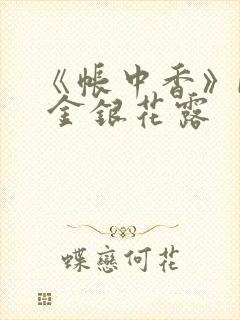 《帳中香》
金銀花露
蝶戀何花